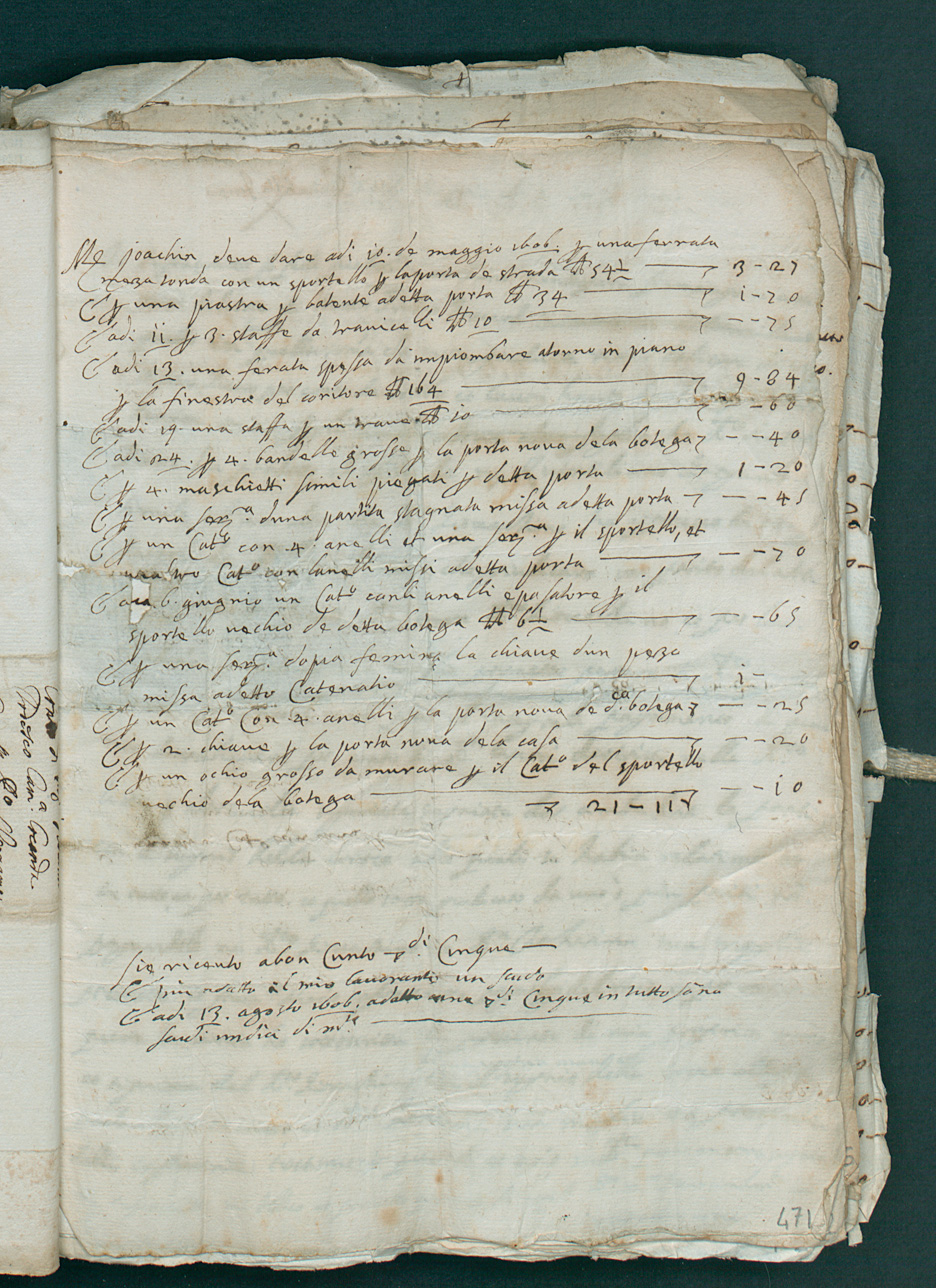 Mº Joachin deve dare adi 10. de maggio 1606. p una ferrata
meza tonda con un sportello p la porta de strada ℔ 54½ — 3-27
E p una piastra p batente adetta porta ℔ 34 — 1-70
E adi 11. p 3. staffe da travicelli ℔ 10 — - -75
E adi 13. una ferata spessa da impiombare atorno in piano
p la finestra del coritore ℔ 164 — 9-84
E adi 19. una staffa p un trave ℔ 10 — -60
E adi 24. p 4. bandelle grosse p la porta nova dela botega - -40
E p 4. maschietti simili piegati p detta porta — 1-20
E p una serª duna partita stagnata missa adetta porta - -45
E p un Catº con .4. anelli et una serª p il sportello, et
unaltro Catº con lanelli missi adetta porta — - -70
E adi 6. giugnio un Catº con li anelli e pasatore p il
sportello vechio de detta botega ℔ 6½ — - -65
E p una serª dopia femina la chiave dun pezo
missa adetto Catenatio — 1-
E p un Catº Con .4. anelli p la porta nova de d.ca botega - -25
E p 2. chiave p la porta nova dela casa — - -20
E p un ochio grosso da murare p il Catº del sportello
vechio dela botega — - -10
21-11
Sie riceuto abon Cunto di Cinque —
E piu adatto al mio lavorante un scudo
E adi 13. agosto 1606. adatto di Cinque in tutto sono
scudi undici di mta
471